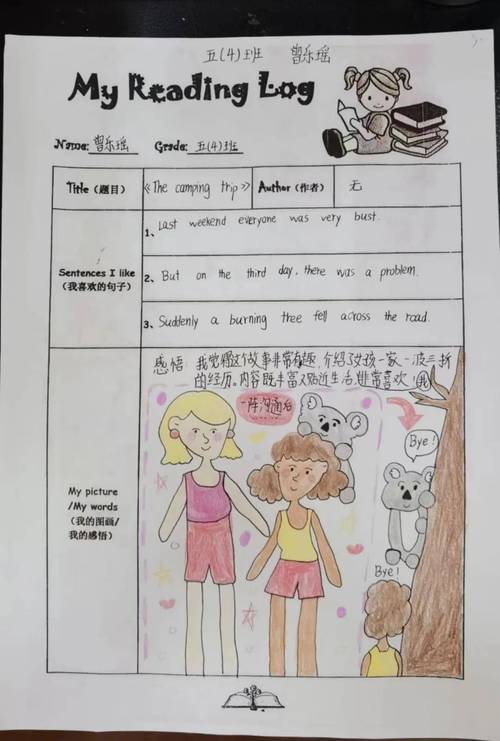 五(4)班 曾乐瑶
My Reading Log
Name: 曾乐瑶 Grade: 五(4)班
Title (题目) 《The camping trip》 Author (作者) 无
Sentences I like
(我喜欢的句子)
1、Last weekend everyone was very bust.
2、But on the third day, there was a problem.
3、Suddenly a burning tree fell across the road.
My picture
/My words
(我的图画/
我的感悟)
感悟: 我觉得这个故事非常有趣,介绍了女孩一家一波三折
的经历。内容既丰富又贴近生活,非常喜欢!
一阵沟通后
Bye!
Bye!